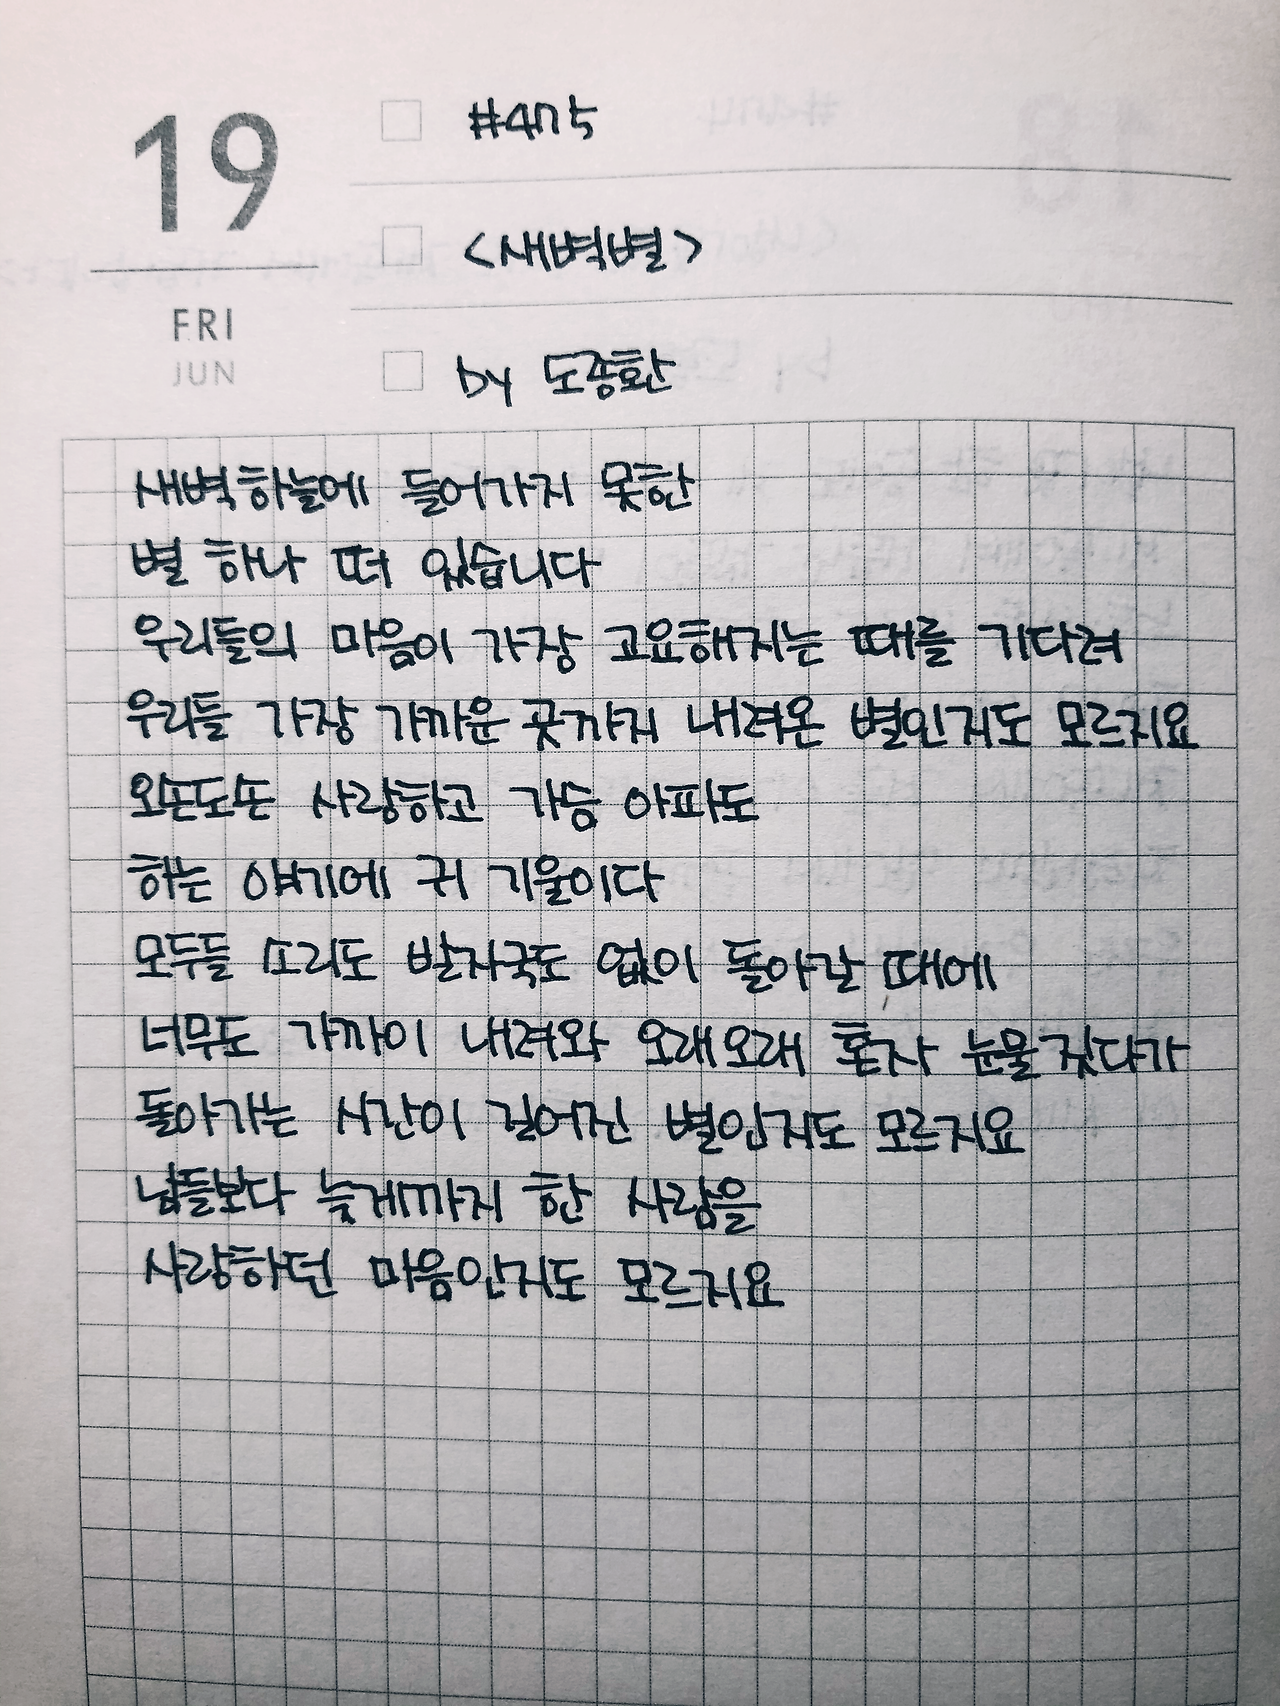 19
FRI
JUN
#475
<새벽별>
by 도종환
새벽하늘에 들어가지 못한
별 하나 떠 있습니다
우리들의 마음이 가장 고요해지는 때를 기다려
우리들 가장 가까운 곳까지 내려온 별인지도 모르지요
오손도손 사랑하고 가슴 아파도
하는 얘기에 귀 기울이다
모두들 소리도 발자국도 없이 돌아갈 때에
너무도 가까이 내려와 오래오래 혼자 눈물짓다가
돌아가는 시간이 길어진 별인지도 모르지요
남들보다 늦게까지 한 사람을
사랑하던 마음인지도 모르지요